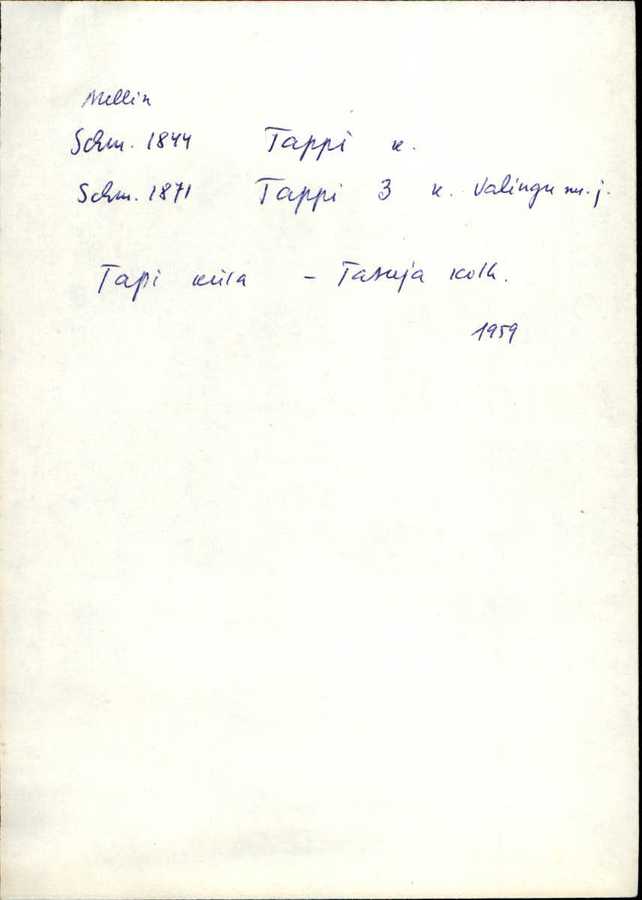 Mellin
Schm. 1844 Tappi k.
Schm. 1871 Tappi 3 k. Valingu m. j.
Tapi küla - Tasuja kolh.
1959